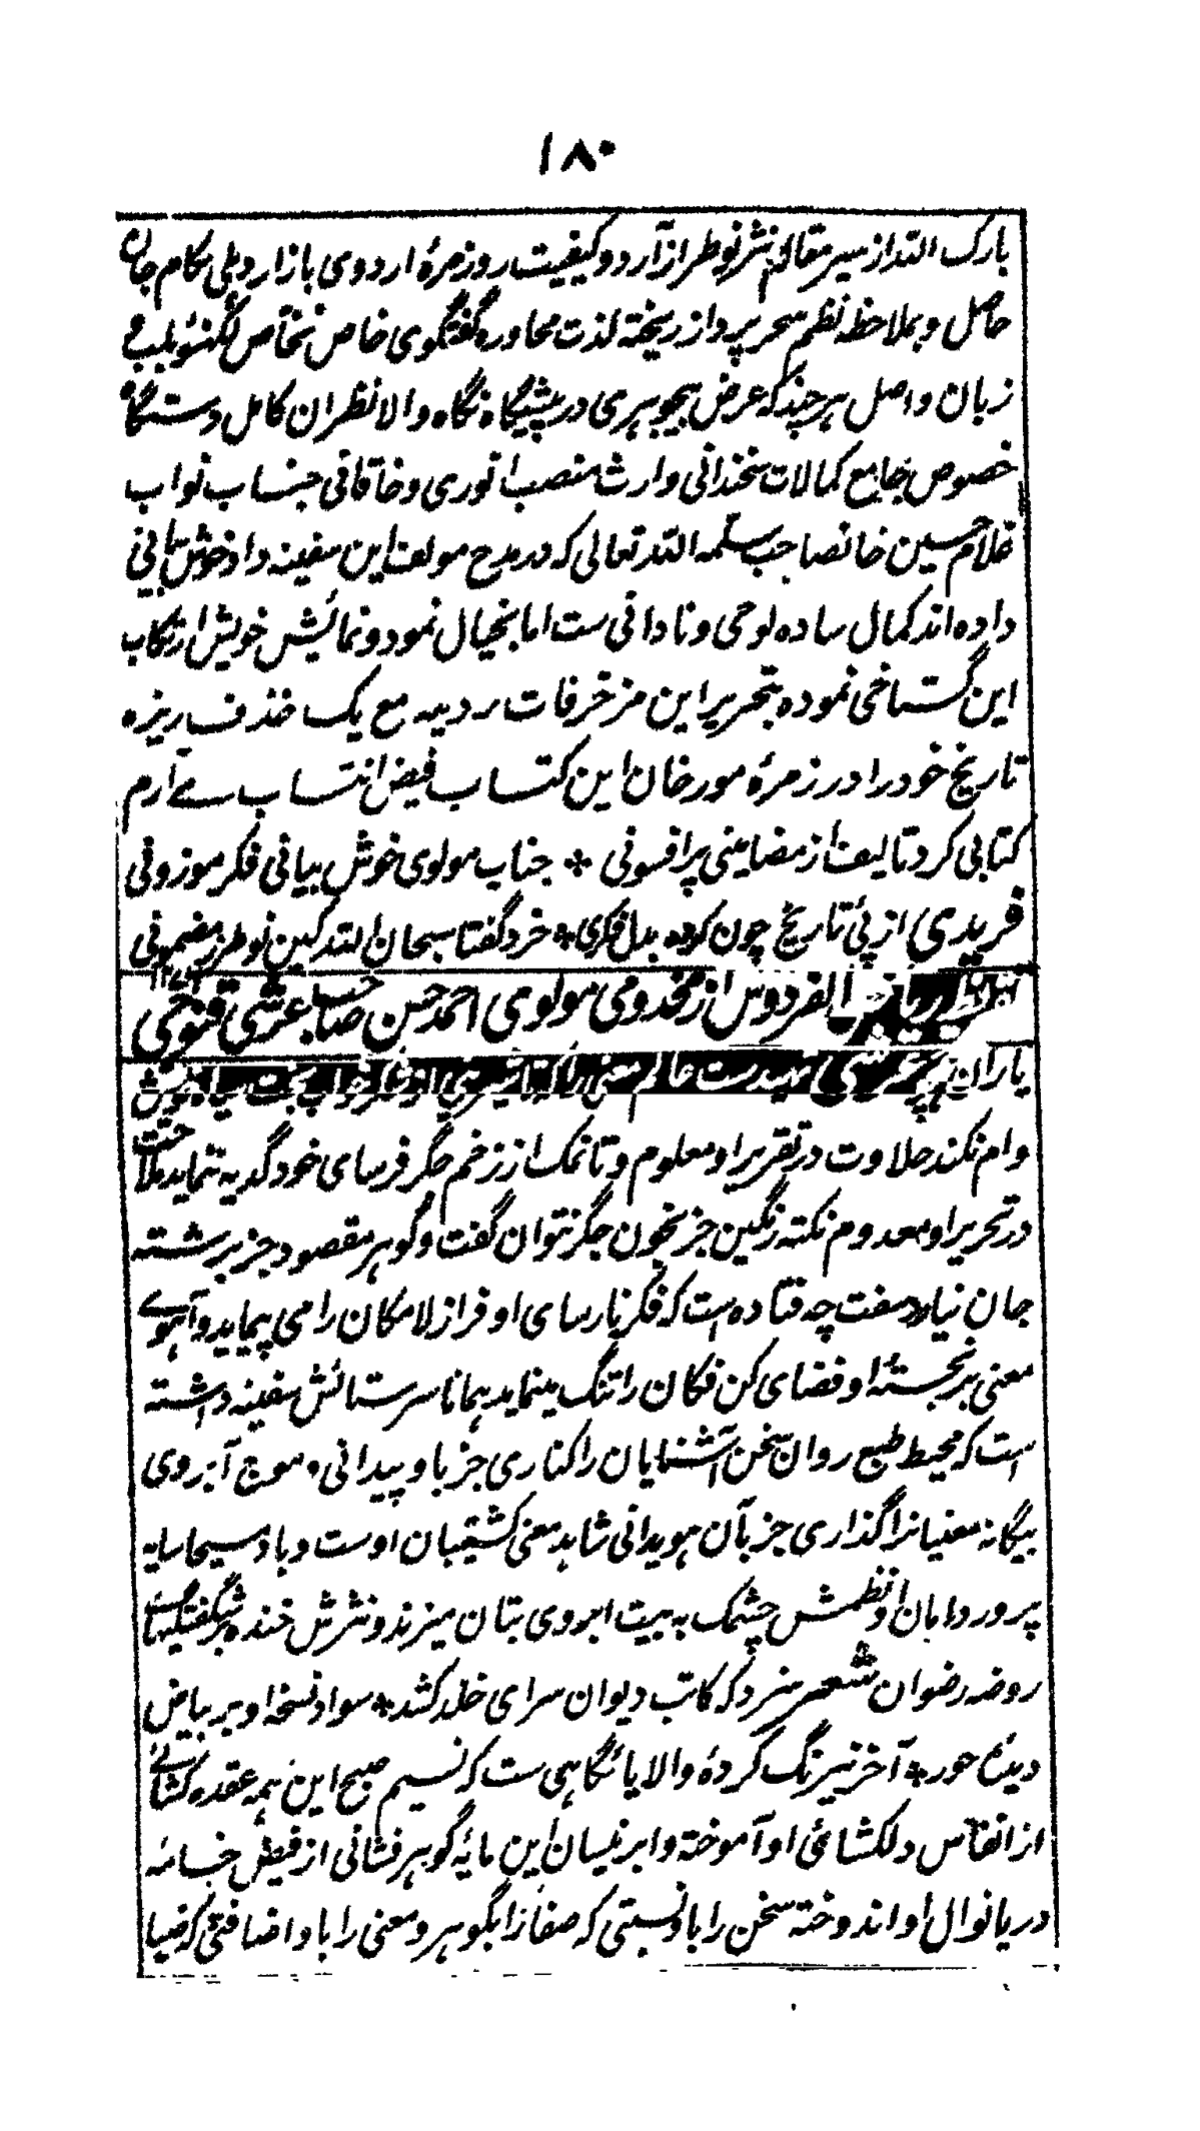 ۱۸۰
بارک الله از سیر مقالهٔ نثر نوطراز آردو کیفیت روزمرهٔ اردوی بازار دهلی بکام جان
حاصل و بملاحظه نظم سحر پرداز ریخته لذت محاوره گفتگوی خاص نخاص لکهنؤ بلب و
زبان واصل هرچند که عرض بیجوهری در پیشگاه نگاه والانظران کامل دستگاه
خصوص جامع کمالات سخندانی وارث منصب انوری و خاقانی جناب نواب
غلام حسین خانصاحب سلمه الله تعالی که در مدح مولف این سفینه داد خوش بیانی
داده اند کمال ساده لوحی و نادانی ست اما بخیال نمود و نمائیش خویش ارتکاب
این گستاخی نموده بتحریر این مزخرفات ردیه مع یک خذف ریزه
تاریخ خود را در زمرهٔ مورخان این کتاب فیض انتساب سے آرم
کتابی کرد تالیف از مضامینی پر افسونی * جناب مولوی خوش بیانی فکر موزونی
فریدی از پئ تاریخ چون کرده بدل فکری * خرد گفتا سبحان الله کین نو طرز مضمونی
الفردوس از مخدومی مولوی احمد حسن صاحب عرشی قنوجی
یاران
وام نکند حلاوت در تقریر او معلوم و تا نمک از زخم جگر فرسای خود گدیه ننماید
در تحریر او معدوم نکته رنگین جز بخون جگر نتوان گفت و گوهر مقصود جز برشته
جان نیارد سفت چه فتاده است که فکر نارسای او فراز لامکان را می پیماید و آهوے
معنی برجستهٔ او فضای کن فکان را تنگ مینماید همانا سر ستائش سفینه داشته
است که محیط طبع روان سخن آشنایان را کناری جز با و پیدانی و موج آبروی
بیگانه معنیانرا گذاری جز بآن هویدانی شاهد معنی کشتیبان اوست و باد مسیحا سایه
پرور دامان او نظمش چشمک به بیت ابروی بتان میزند و نثرش خنده بر شگفتگیهاے
روضه رضوان شعر سزد که کاتب دیوان سرای خلد کشد * سواد نسخهٔ او بر بیاض
دیدهٔ حور * آخر نیرنگ کردهٔ والا پائگاهی ست که نسیم صبح این همه عقده کشائے
از انفاس دلکشائ او آموخته و ابر نیسان این مایهٔ گوهر فشانی از فیض خامه
دریا نوال او اندوخته سخن را با و نسبتی که صفا را بگوهر و معنی را با و اضافتی که ضیا